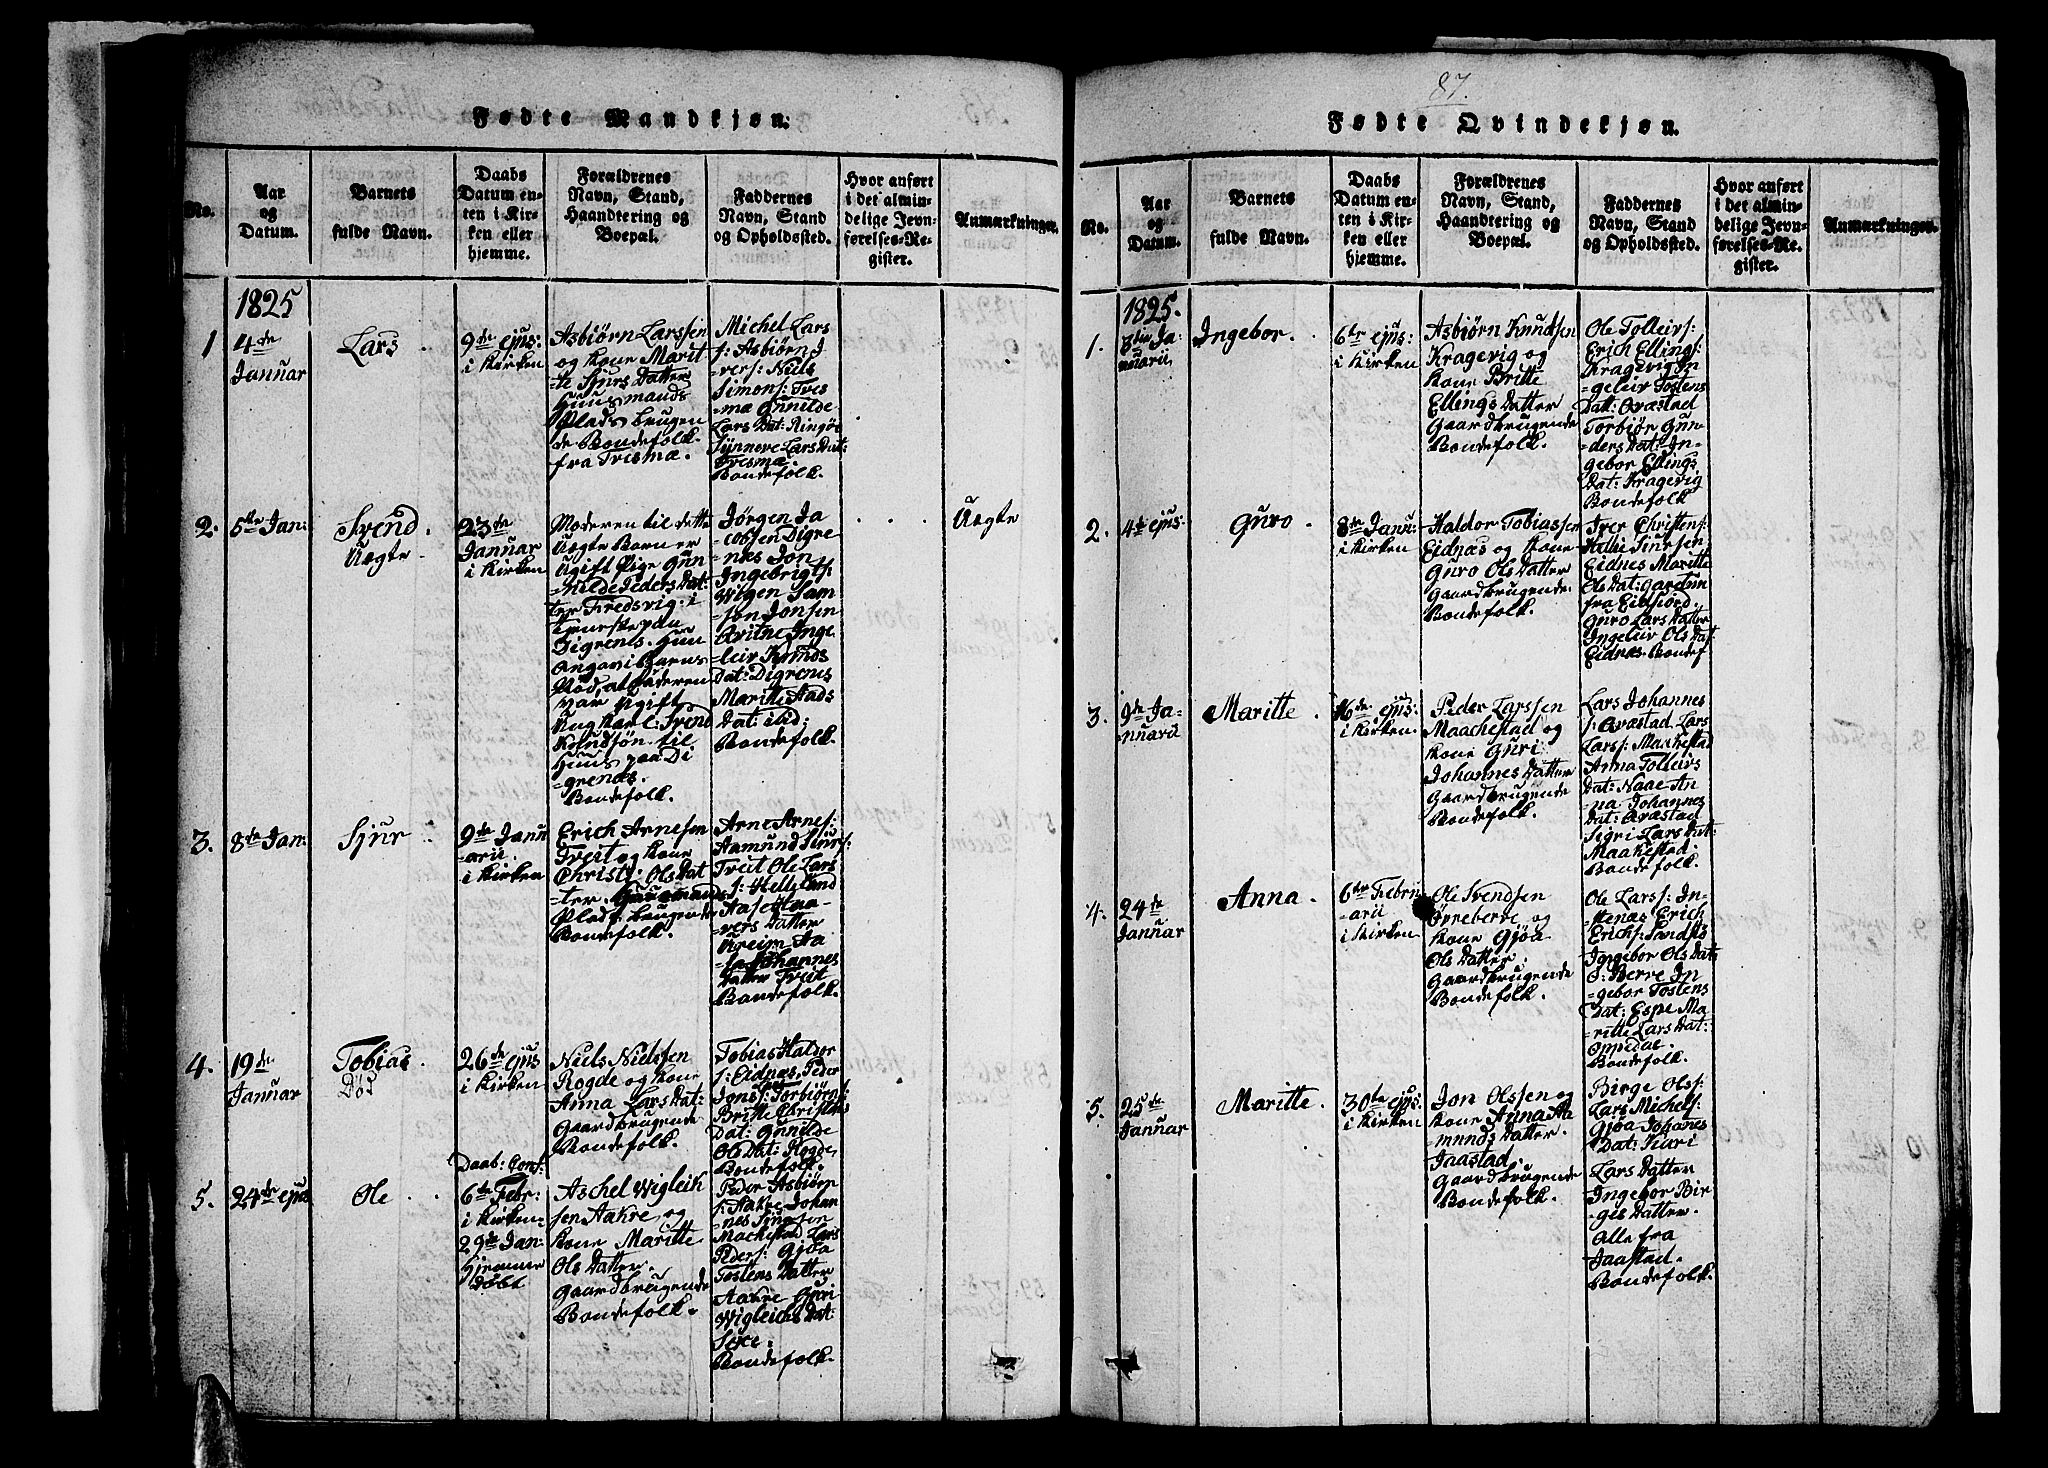 87.
Fødte Mandkjøn.
No.
Aar
og
Datum.
Barnets
fulde Navn.
Daabs
Datum en-
ten i Kir-
ken eller
hjemme.
Forældrenes
Navn, Stand,
Haandtering og
Boepæl.
Faddernes
Navn, Stand
og Opholdssted.
Hvor anført
i det almin-
delige Jevn-
førelses-Re-
gister.
Anmærkninger.
1825
1
4de
Januar
Lars
9de ejus:
i Kirken
Asbiørn Larssen
og Kone Marit
=te Sjurs Datter
Huusmands
Plads brugen
de Bondefolk
fra Tresmæ.
Michel Lars
s: Asbiørn I
vers: Niels
Simons: Tres
=mæ Gunilde
Lars Dat: Ringøe
Synneve Lars Dat:
Tresmæ
Bondefolk
2.
5te Jan:
Svend
Uegte
23de
Januar
i Kirken
Moderen til dette
Uegte Barn er
Ugift Pige Gun
=hilde Peders Dat:
ter Fredsvig: i
tjeneste paa
Digrenes. Hun
angav i Barns
Nød, at Faderen
var Ugift
Ung Karl: Svend
Knudsøn til
Huus paa Di
=grenæs.
Bondefolk.
Jørgen Ja
cobsen Digre
næs Jon
Ingebrigts:
Wigen Sam
son Jonsen
Qvitne Inge
=leiv Knuds
Dat: Digrenes
Maritte Aads
Dat: ibid:
Bondefolk.
Uegte
3.
8de Jan:
Sjur
9de Janu
=arii
i Kirken
Erich Arnesen
Treit og Kone
Christi: Ols Dat
=ter. Huusmands
Plads brugende
Bondefolk.
Arne Arnes:
Aamund Siurs:
Treit Ole Lars
s: Helleland
Aase Haa-
=vers Datter
Qreim Sa
Johannes
Datter Treit
Bondefolk.
4.
19de
Januar
Tobias
Død
26de ejus
i Kirken
Niels Nielssen
Rogde og Kone
Anna Lars Dat:
Gaardbrugende
Bondefolk.
Tobias Haldor
s: Eidnæs, Peder
Jons: Torbiørn
Britte Christens
Dat: Gunilde
Ols Dat: Rogde
Bondefolk.
5.
24de ejus
Ole
Daab: Conf:
6te Febr:
i Kirken.
29de Jan:
hjemme
døbt
Aschel Wigleik
sen Aakre og
Kone Maritte
Ols Datter.
Gaardbrugende
Bondefolk.
Peder Asbiørn
s: Aakre Johan
=nes Siursen
Machestad Lars
Peders: Gjøa
Tostens Datter
Aakre Guri
Wigleichs Dat:
Sexe.
Bondefolk.
Fødte Qvindekjøn.
No.
Aar
og
Datum.
Barnets
fulde Navn.
Daabs
Datum en-
ten i Kir-
ken eller
hjemme.
Forældrenes
Navn, Stand,
Haandtering og
Boepæl.
Faddernes
Navn, Stand
og Opholdssted.
Hvor anført
i det almin-
delige Jevn-
førelses-Re-
gister.
Anmærkninger.
1825.
1.
3die Ja-
nuarii
Ingebor.
6te ejus:
i Kirken
Asbiørn Knudsen
Kragevig og
Kone Britte
Ellings Datter
Gaardbrugende
Bondefolk.
Ole Tolleivs:
Erich Ellings:
Kragevig In
=geleiv Tostens
Datt: Qvæstad
Torbiør Gun=
=ders Dat: In-
gebor Ellings
Dat: Kragevig
Bondefolk
2.
4de ejus:
Guro
8de Janu:
i Kirken
Haldor Tobiassen
Eidnæs og Kone
Guro Ols Datter
Gaardbrugende
Bondefolk.
Iver Christens:
Hellie Siursen
Eidnes Maritte
Ols Dat: Gartun
fra Eidfiord
Guro Lars Datter
Ingeleiv Ols Dat:
Eidnæs. Bondef
3.
9de Ja-
=nuarii
Maritte
16de ejus:
i Kirken.
Peder Larssen
Maachestad og
Kone Guri
Johannes Datter
Gaardbrugende
Bondefolk.
Lars Johannes
s: Qvæstad Lars
Lars: Maakestad
Anna Tolleivs
Dat: Naae An
=na Johannes
Dat: Qvæstad
Sigri Lars Dat:
Maakestad:
Bondefolk.
4.
24de
Januar
Anna
6te Febru
=arii
i Kirken
Ole Svendsen
Øvreberre og
Kone Gjøa
Ols Datter.
Gaardbrugende
Bondefolk.
Ole Larss: In-
=tenæs Erich
Erichs: Sandstø
Ingebor Ols Dat:
Ø: Berre In
=gebor Tostens
Dat: Espe Ma
=ritte Lars Dat:
Oppedal.
Bondefolk.
5.
25de
Januar
Maritte
30te ejus:
i Kirken
Jon Olssen og
Kone Anna Aa
munds Datter.
Jaastad.
Gaardbrugende
Bondefolk.
Birge Ols:
Lars Michels:
Gjøa Johanes
Dat: Kari
Lars Datter
Ingebor Bir
ges Datter.
Alle fra
Jaastad.
Bondefolk.